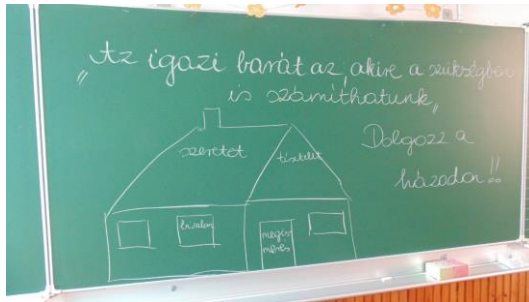 „Az igazi barát az, akire a szükségben
is számíthatunk„
Dolgozz a
házadon!!
szeretet
tisztelet
bizalom
megér